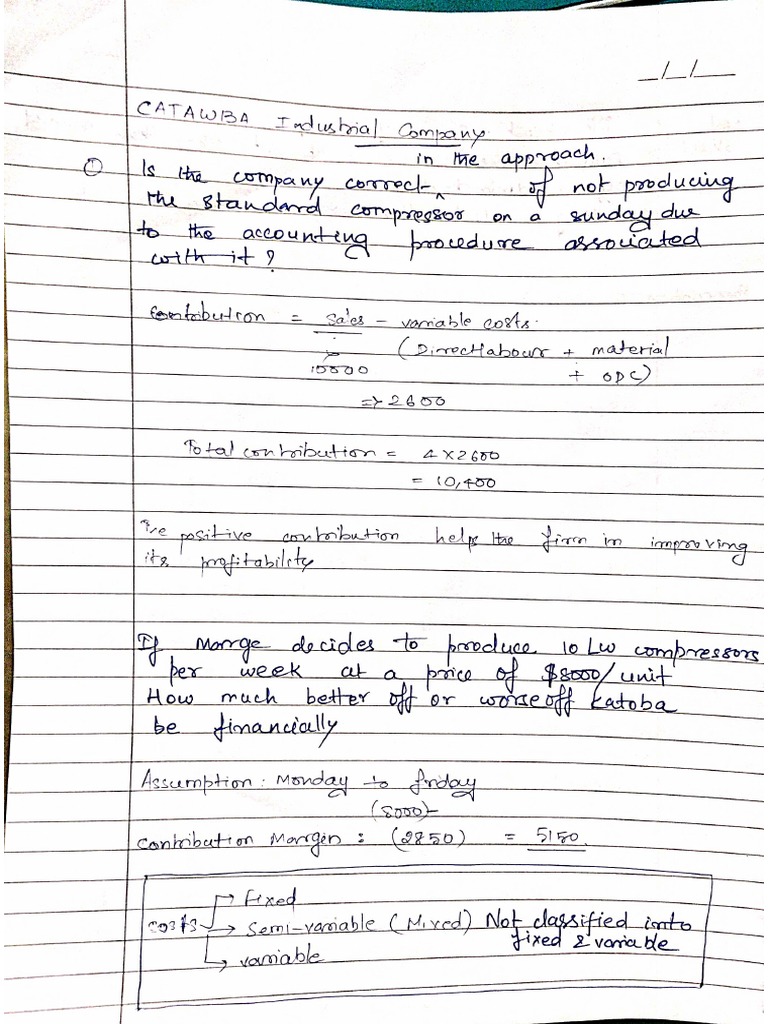 _/_/__
CATAWBA Industrial Company
in the approach.
① Is the company correct ^ of not producing
the standard compressor on a sunday due
to the accounting procedure associated
with it ?
Contribution = sales - variable costs.
(Direct labour + material
10000 + ODC)
=> 2600
Total contribution = 4 x 2600
= 10,400
positive contribution helps the firm in improving
its profitability
If Marge decides to produce 10 LW compressors
per week at a price of $8000/unit
How much better off or worse off Katoba
be financially
Assumption : Monday to friday
(8000)-
Contribution Margin : (2850) = 5150
→ Fixed
costs → Semi-variable (Mixed) Not classified into
fixed & variable
→ variable